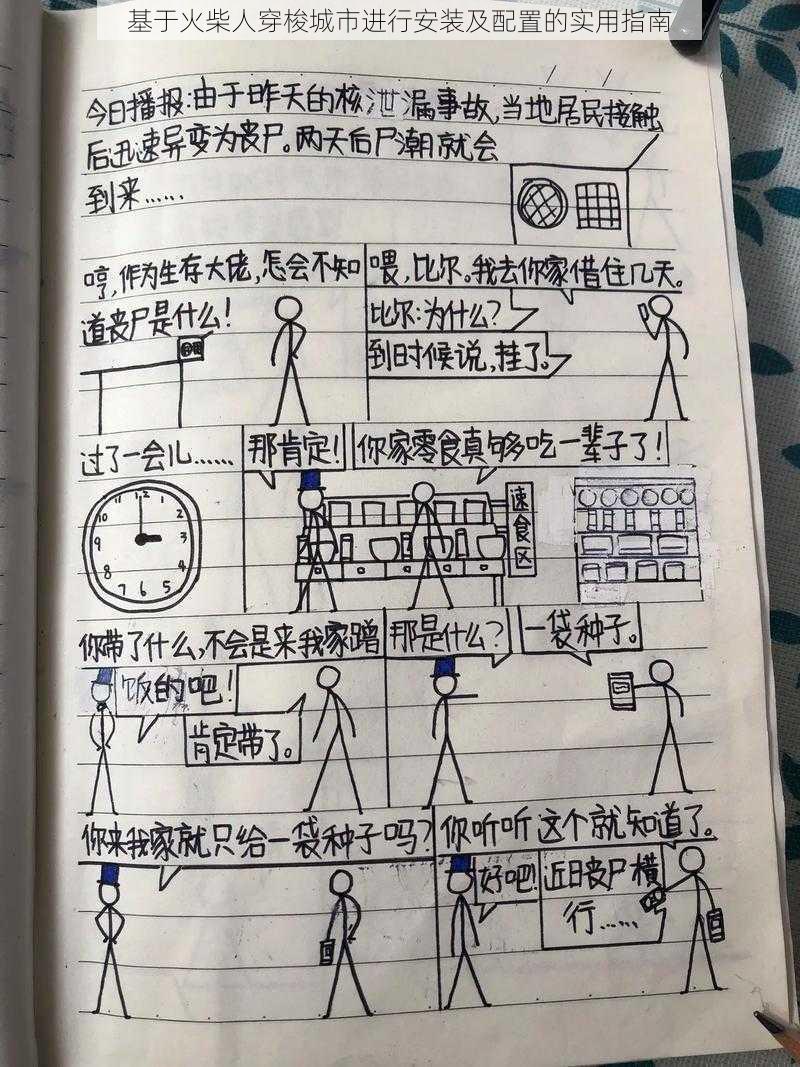 基于火柴人穿梭城市进行安装及配置的实用指南
今日播报:由于昨天的核泄漏事故,当地居民接触
后迅速异变为丧尸。两天后尸潮就会
到来……
哼,作为生存大佬,怎会不知
道丧尸是什么!
喂,比尔。我去你家借住几天。
比尔:为什么?
到时候说,挂了。
过了一会儿……
12
1
2
3
4
5
6
7
8
9
10
11
那肯定!
你家零食真够多吃一辈子了!
速食区
你带了什么,不会是来我家蹭
饭的吧!
肯定带了。
那是什么?
一袋种子。
你来我家就只给一袋种子吗?
你听听这个就知道了。
好吧!
近日丧尸横
行……